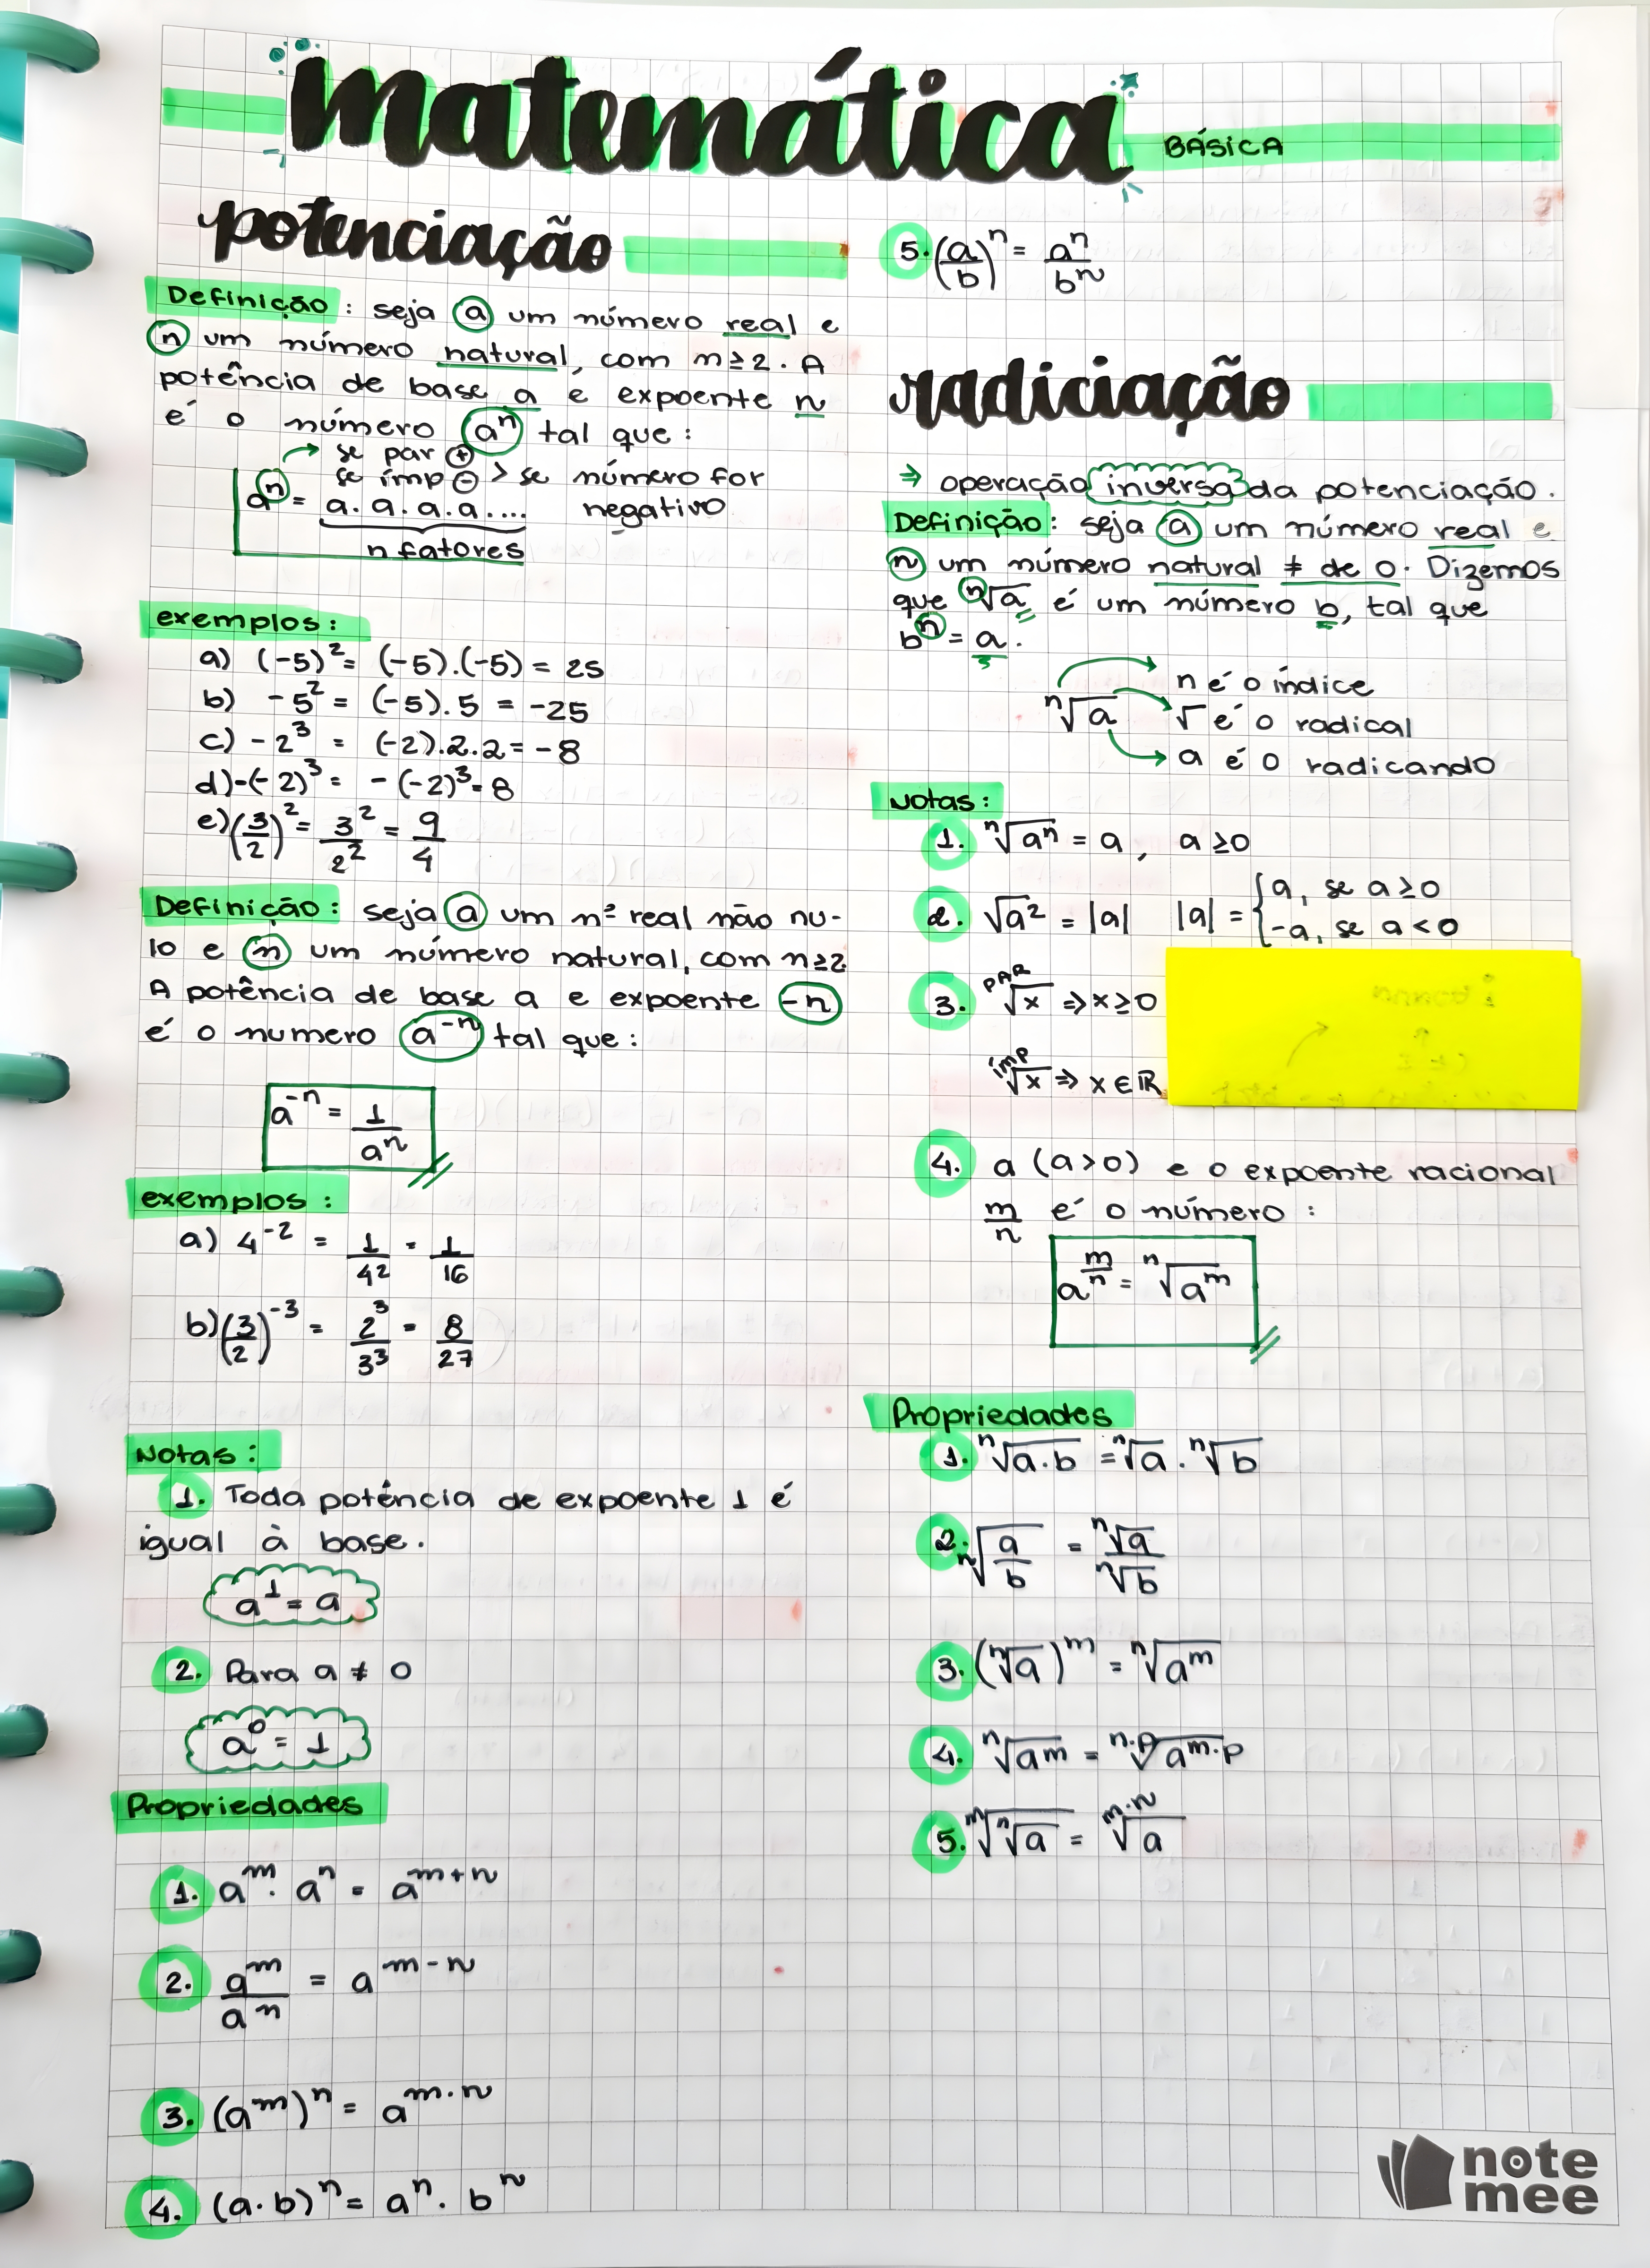 matemática BÁSICA
potenciação
Definição: seja a um número real e
n um número natural, com n≥2. A
potência de base a e expoente n
é o número aⁿ tal que:
se par ⊕
se ímp ⊖ > se número for
negativo
aⁿ = a.a.a.a....
n fatores
exemplos:
a) (-5)² = (-5).(-5) = 25
b) -5² = (-5).5 = -25
c) -2³ = (-2).2.2 = -8
d) -(-2)³ = -(-2)³ = 8
e) (3/2)² = 3²/2² = 9/4
Definição: seja a um nº real não nu-
lo e n um número natural, com n≥2.
A potência de base a e expoente -n
é o numero a⁻ⁿ tal que:
a⁻ⁿ = 1/aⁿ
exemplos:
a) 4⁻² = 1/4² = 1/16
b) (3/2)⁻³ = 2³/3³ = 8/27
Notas:
1. Toda potência de expoente 1 é
igual à base.
a¹ = a
2. Para a ≠ 0
a⁰ = 1
Propriedades
1. aᵐ . aⁿ = aᵐ⁺ⁿ
2. aᵐ/aⁿ = aᵐ⁻ⁿ
3. (aᵐ)ⁿ = aᵐ·ⁿ
4. (a.b)ⁿ = aⁿ . bⁿ
5. (a/b)ⁿ = aⁿ/bⁿ
radiciação
⇒ operação inversa da potenciação.
Definição: seja a um número real e
n um número natural ≠ de 0. Dizemos
que ⁿ√a é um número b, tal que
bⁿ = a.
n é o índice
ⁿ√a √ é o radical
a é o radicando
Notas:
1. ⁿ√aⁿ = a, a≥0
2. √a² = |a| |a| = { a, se a≥0
-a, se a<0
3. ᴾᴬᴿ√x ⇒ x≥0
ⁱᵐᵖ√x ⇒ x∈ℝ
4. a (a>0) e o expoente racional
m/n é o número:
a^(m/n) = ⁿ√aᵐ
Propriedades
1. ⁿ√a.b = ⁿ√a . ⁿ√b
2. ⁿ√(a/b) = ⁿ√a/ⁿ√b
3. (ⁿ√a)ᵐ = ⁿ√aᵐ
4. ⁿ√aᵐ = ⁿ·ᵖ√aᵐ·ᵖ
5. ᵐ√ⁿ√a = ᵐ·ⁿ√a
note
mee